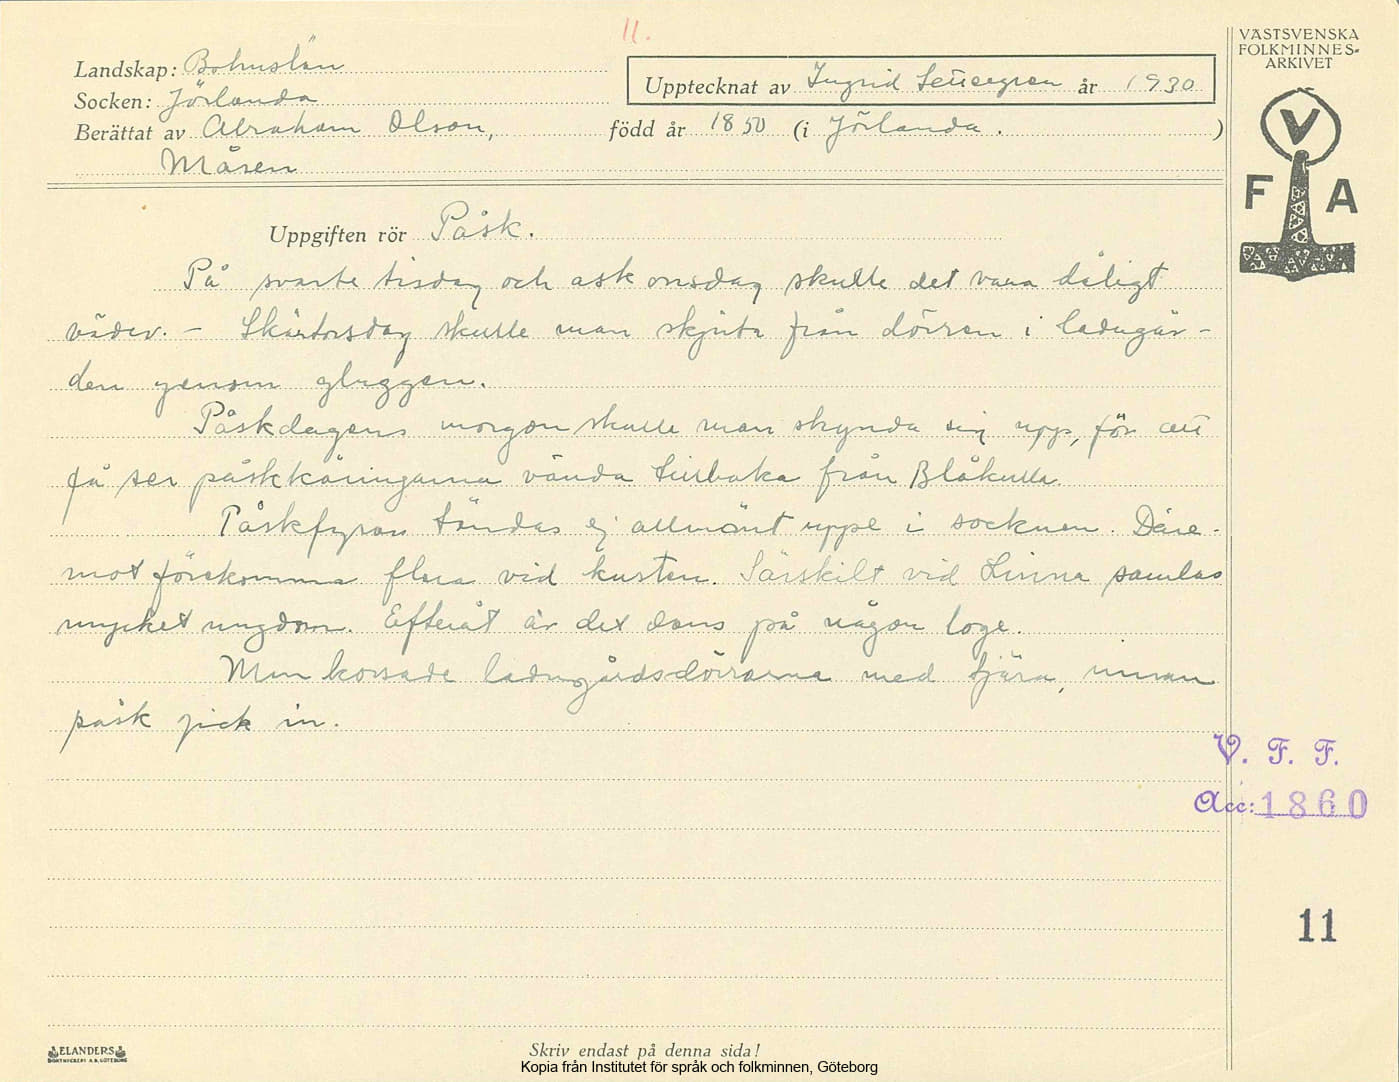 11.
VÄSTSVENSKA
FOLKMINNES-
ARKIVET
Landskap: Bohuslän
Upptecknat av Ingrid år 1930
Socken: Jörlanda
Berättat av Abraham Olson, född år 1850 (i Jörlanda. )
Måsen
V
F A
Uppgiften rör Påsk.
På svarte tisdag och ask onsdag skulle det vara dåligt
väder. – Skärtorsdag skulle man skjuta från dörren i ladugår-
den genom gluggen.
Påskdagens morgon skulle man skynda sig upp, för att
få se påskkäringarna vända tillbaka från Blåkulla.
Påskfyrar tändas ej allmänt uppe i socknen. Däre-
mot förekomma flera vid kusten. Särskilt vid samlas
mycket ungdom. Efteråt är det dans på någon loge.
Man korsade ladugårdsdörrarna med tjära, innan
påsk gick in.
V. F. F.
Acc: 1860
11
ELANDERS
BOKTRYCKERI A.B. GÖTEBORG
Skriv endast på denna sida!
Kopia från Institutet för språk och folkminnen, Göteborg